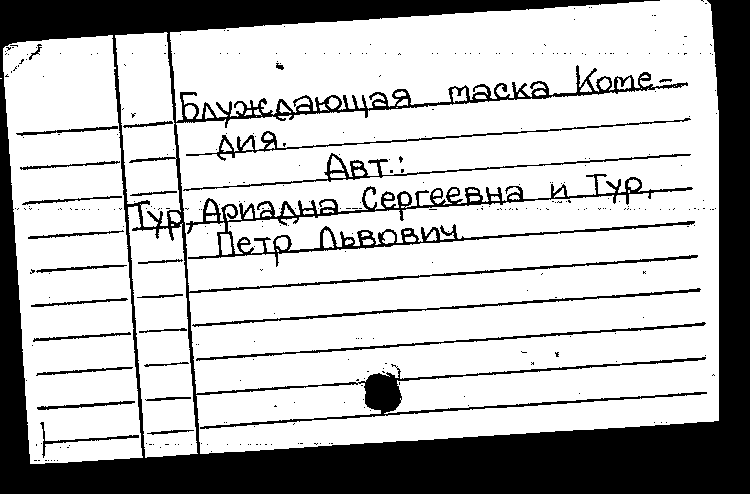 Блуждающая маска Коме-
дия.
Авт.:
Тур, Ариадна Сергеевна и Тур,
Петр Львович.